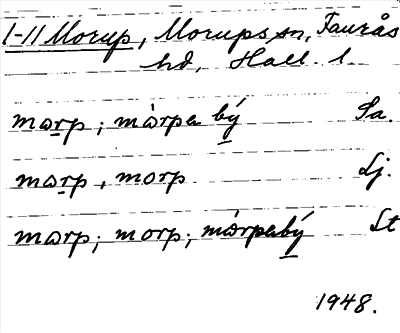 1-11 Morup, Morups sn, Faurås
hd, Hall. l.
mɷrp; mɷ̀rpa bý Sa.
mɷrp, morp Lj.
mɷrp; morp; mɷ̀rpabý Lt
1948.